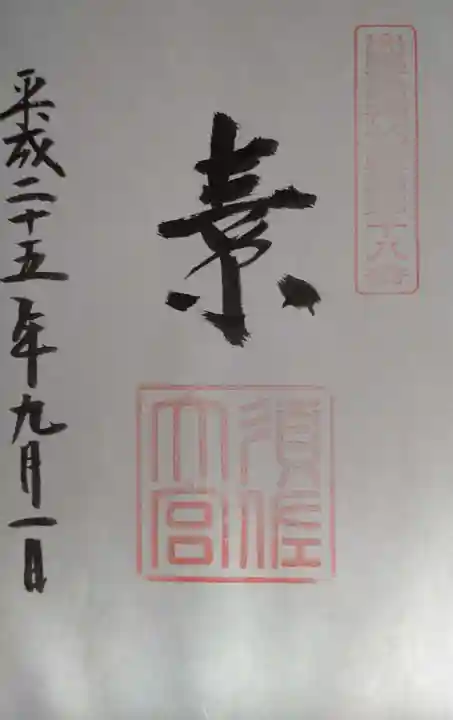 十八番
素
須佐
大宮
平成二十五年九月一日